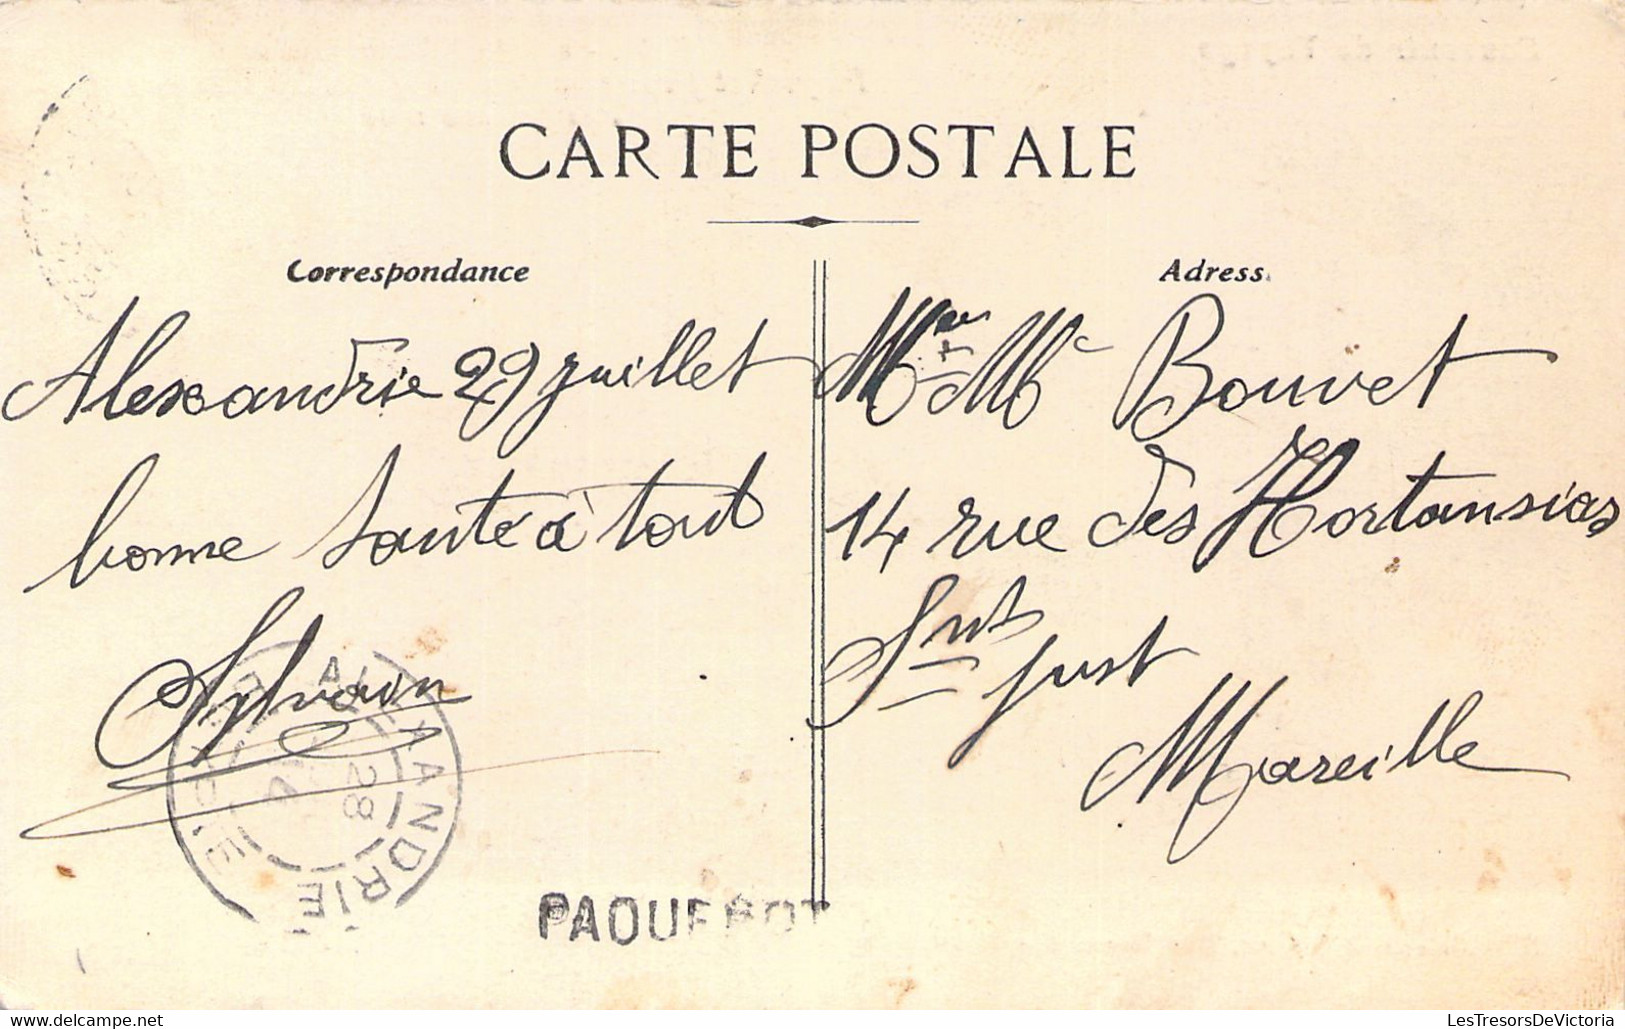 CARTE POSTALE
Correspondance
Alexandrie 29 juillet
bonne sante à tout
Sylvain
ALEXANDRIE
28
PAQUEBOT
Adress
Mr et Me Bouvet
14 rue des Hortansias
Snt just
Mareille
www.delcampe.net
LesTresorsDeVictoria